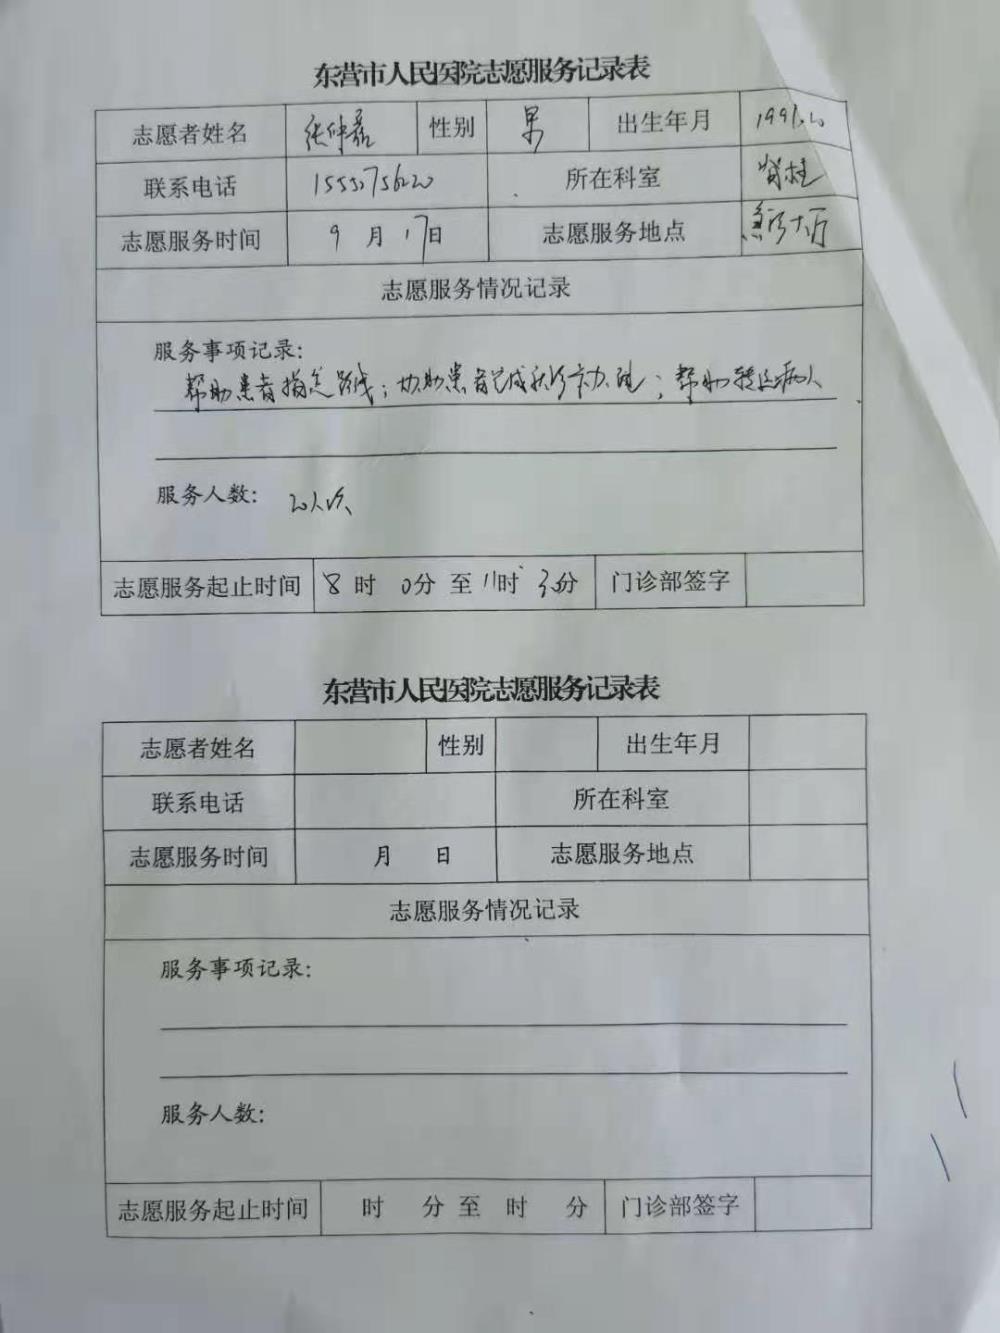 东营市人民医院志愿服务记录表
志愿者姓名 张仲磊 性别 男 出生年月
联系电话 所在科室 脊柱
志愿服务时间 9 月 17 日 志愿服务地点 急诊大厅
志愿服务情况记录
服务事项记录:
帮助患者指定路线；协助患者完成就诊 ；帮助转运病人
服务人数: 人次
志愿服务起止时间 8 时 0 分 至 11 时 30 分 门诊部签字
东营市人民医院志愿服务记录表
志愿者姓名 性别 出生年月
联系电话 所在科室
志愿服务时间 月 日 志愿服务地点
志愿服务情况记录
服务事项记录:
服务人数:
志愿服务起止时间 时 分 至 时 分 门诊部签字